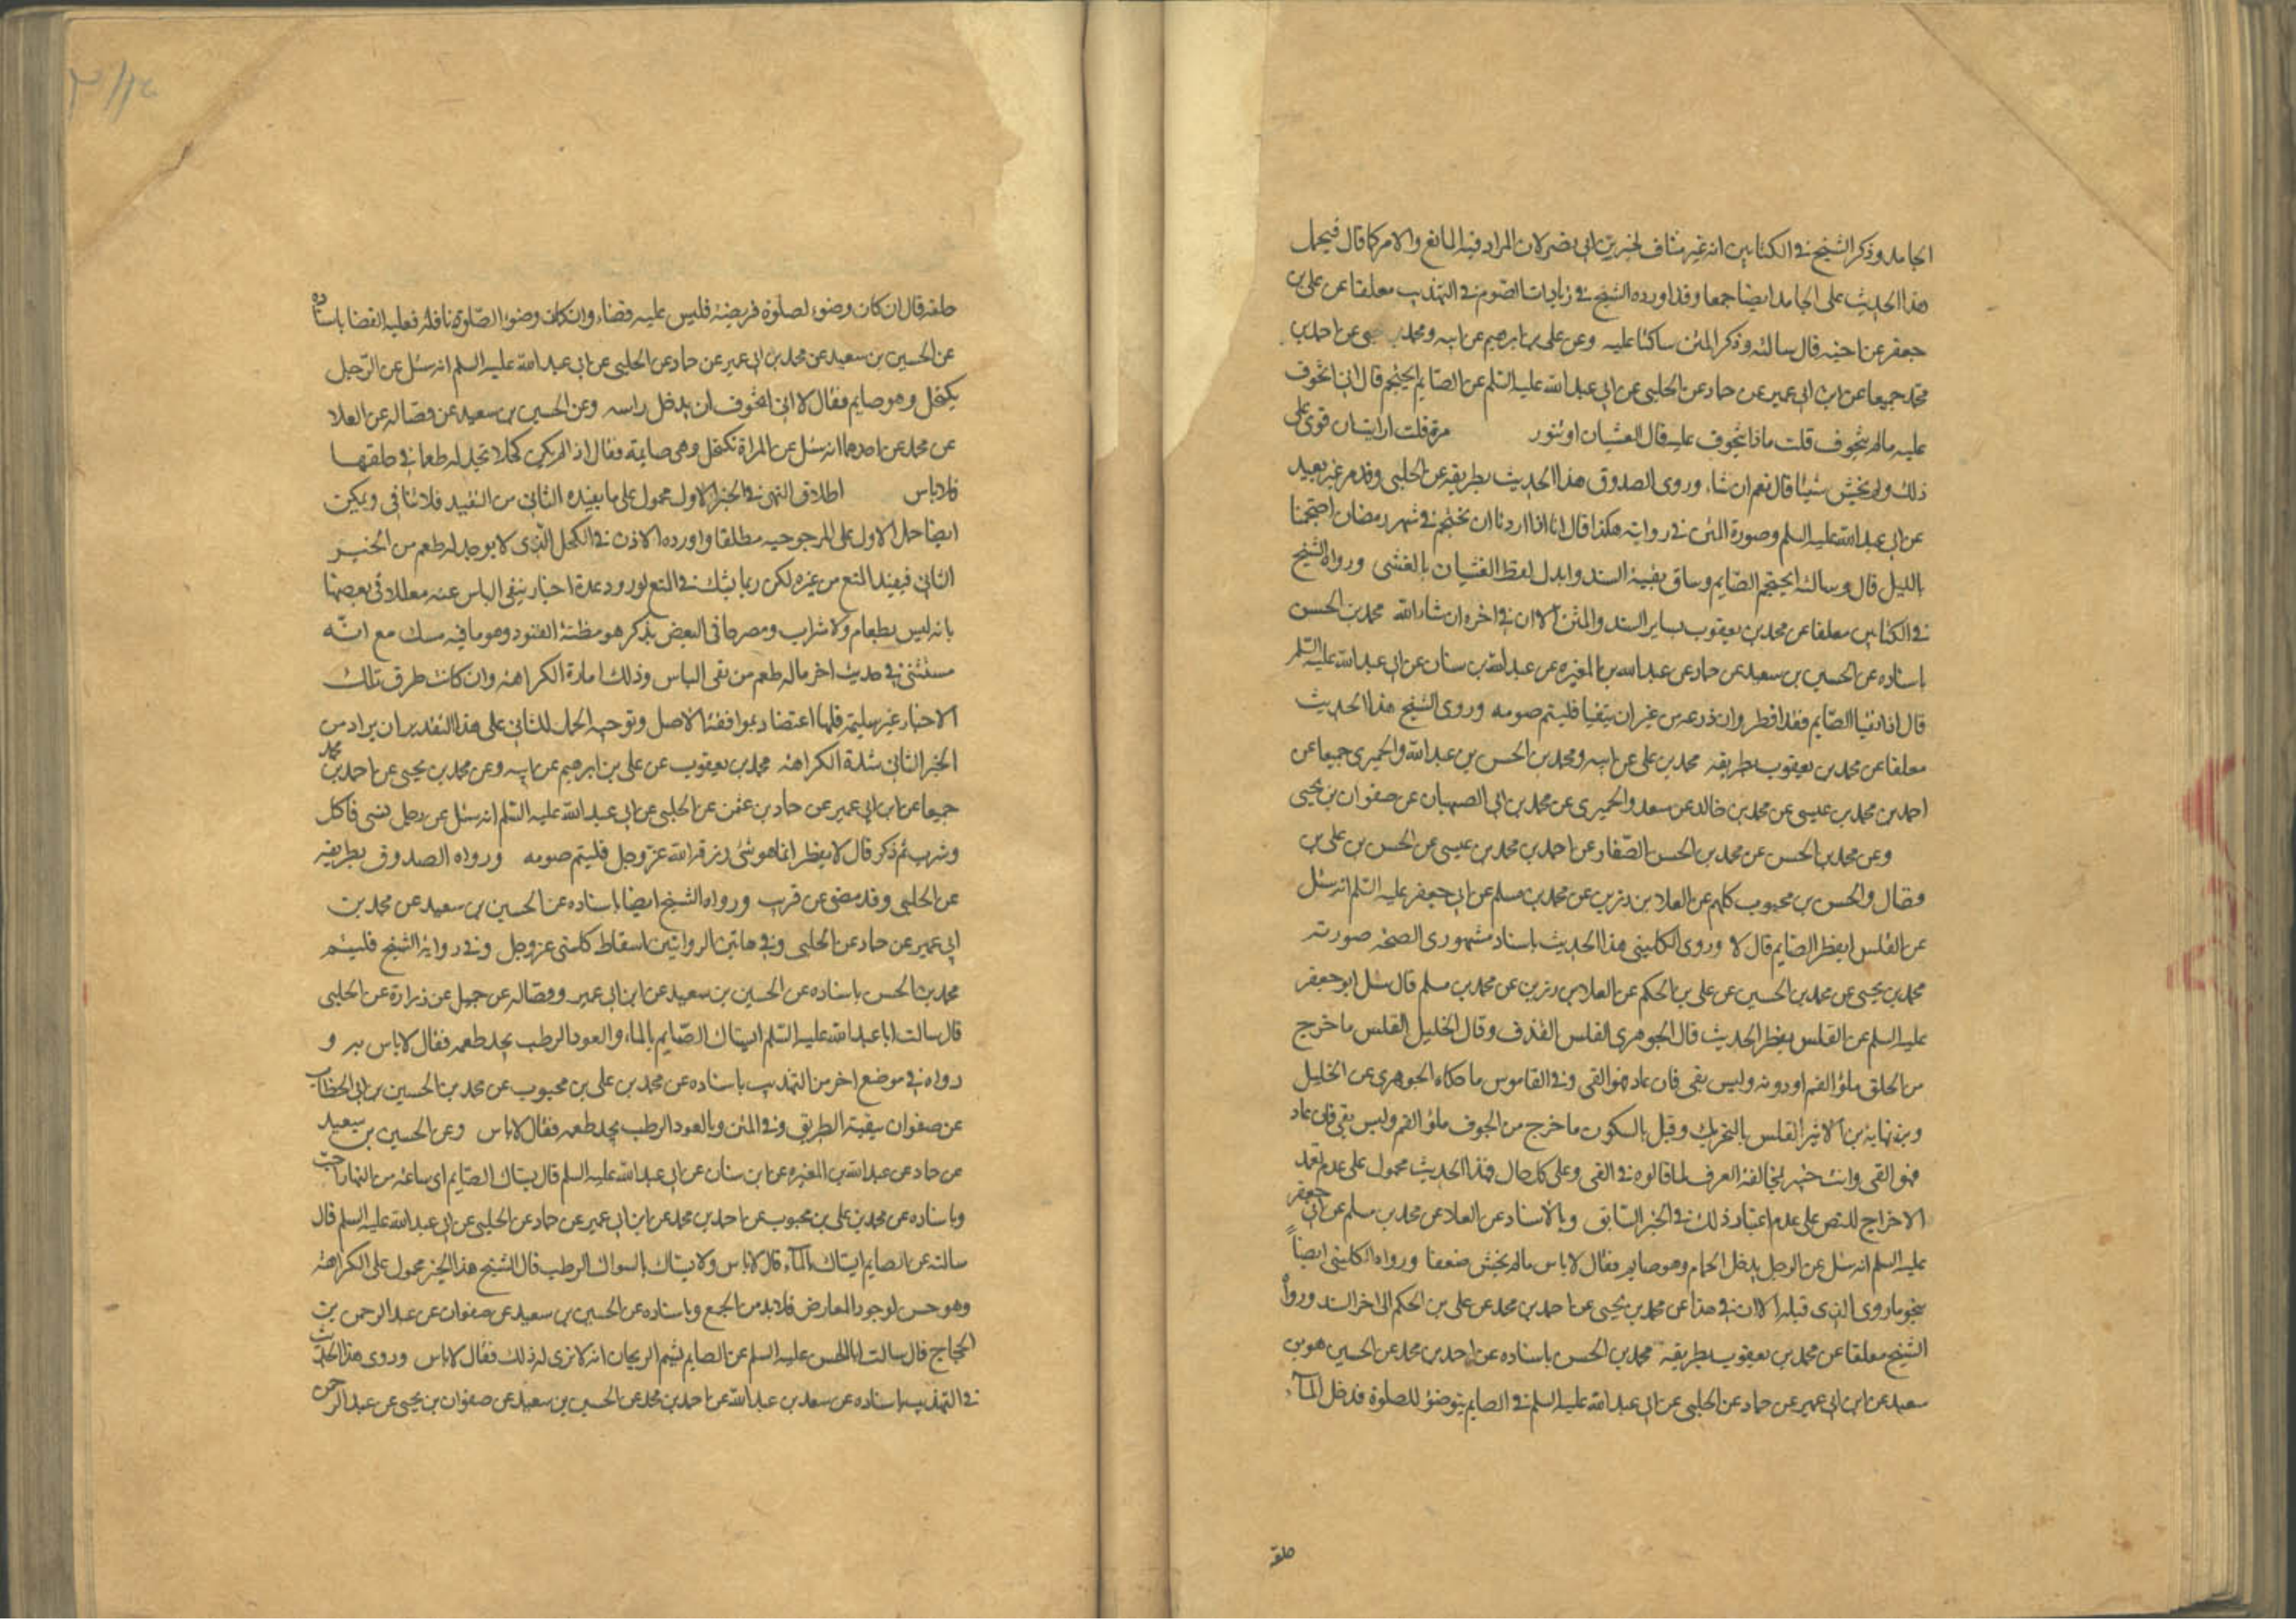 الجامد وذكر الشيخ في الكتابين انه غير مناف لخبر ابي بصير لان المراد فيه المايع والامر كما قال فيحمل
هذا الحديث على الجامد ايضا جمعا وقد اورده الشيخ في زيادات الصوم في التهذيب معلقا عن علي بن
جعفر عن اخيه قال سالته وذكر المتن ساكتا عليه وعن علي بن ابرهيم عن ابيه ومحمد بن يحيى عن احمد بن
محمد جميعا عن ابن ابي عمير عن حماد عن الحلبي عن ابي عبد الله عليه السلم عن الصايم ايحتجم قال اني اتخوف
عليه ماله يتخوف قلت ماذا يتخوف عليه قال الغشيان او تثور مرة قلت ارايت ان قوى على
ذلك ولم يخش شيئا قال نعم ان شاء وروى الصدوق هذا الحديث بطريقه عن الحلبي وقد مر غير بعيد
عن ابي عبد الله عليه السلم وصورة المتن في روايته هكذا قال انا اذا اردنا ان نحتجم في شهر رمضان احتجمنا
بالليل قال وسالته ايحتجم الصايم وساق بقية السند وابدل لفظ الغشيان بالغشي ورواه الشيخ
في الكتابين معلقا عن محمد بن يعقوب بساير السند والمتن الا ان في اخره ان شاء الله محمد بن الحسن
باسناده عن الحسين بن سعيد عن حماد عن عبد الله بن المغيره عن عبد الله بن سنان عن ابي عبد الله عليه السلم
قال اذا تقيا الصايم فقد افطر وان ذرعه من غير ان يتقيا فليتم صومه وروى الشيخ هذا الحديث
معلقا عن محمد بن يعقوب بطريقه محمد بن علي عن ابيه ومحمد بن الحسن بن عبد الله والحميري جميعا عن
احمد بن محمد بن عيسى عن محمد بن خالد عن سعد والحميري عن محمد بن ابي الصهبان عن صفوان بن يحيى
وعن محمد بن الحسن عن محمد بن الحسن الصفار عن احمد بن محمد بن عيسى عن الحسن بن علي بن
فضال والحسن بن محبوب كلهم عن العلا بن رزين عن محمد بن مسلم عن ابي جعفر عليه السلم انه سئل
عن القلس ايفطر الصايم قال لا وروى الكليني هذا الحديث باسناد مشهوري الصحه صورته
محمد بن يحيى عن محمد بن الحسين عن علي بن الحكم عن العلا بن رزين عن محمد بن مسلم قال سئل ابو جعفر
عليه السلم عن القلس يفطر الحديث قال الجوهري القلس القذف وقال الخليل القلس ما خرج
من الحلق ملؤ الفم او دونه وليس بقي فان عاد فهو القي وفي القاموس ما حكاه الجوهري عن الخليل
وفي نهاية بن الاثير القلس بالتحريك وقيل بالسكون ما خرج من الجوف ملؤ الفم وليس بقي فان عاد
فهو القي وانت خبير بمخالفة العرف لما قالوه في القي وعلى كل حال فهذا الحديث محمول على عدم تعمد
الاخراج للنص على عدم اعتبار ذلك في الخبر السابق وبالاسناد عن العلا عن محمد بن مسلم عن ابي جعفر
عليه السلم انه سئل عن الرجل يدخل الحمام وهو صايم فقال لاباس ماله يخش ضعفا ورواه الكليني ايضاً
بنحو ما روى الذي قبله الا ان في هذا عن محمد بن يحيى عن احمد بن محمد عن علي بن الحكم الى اخر السند ورواه
الشيخ معلقا عن محمد بن يعقوب بطريقه محمد بن الحسن باسناده عن احمد بن محمد عن الحسين هو بن
سعيد عن ابن ابي عمير عن حماد عن الحلبي عن ابي عبد الله عليه السلم في الصايم يتوضؤ للصلوة فدخل الماء
حلقه
حلقه قال ان كان وضوء لصلوة فريضة فليس عليه قضاء وان كان وضوء الصلوة نافلة فعليه القضا باسناده
عن الحسين بن سعيد عن محمد بن ابي عمير عن حماد عن الحلبي عن ابي عبد الله عليه السلم انه سئل عن الرجل
يكتحل وهو صايم فقال لا اني اتخوف ان يدخل راسه وعن الحسين بن سعيد عن فضاله عن العلا
عن محمد عن احدهما انه سئل عن المراة تكتحل وهي صايمة فقال اذا لم يكن كحلا تجد له طعما في حلقها
فلا باس اطلاق النهي في الخبر الاول محمول على ما يفيده الثاني من التقييد فلا تنافي ويمكن
ايضا حمل الاول على المرجوحيه مطلقا واورده الاذن في الكحل الذي لا يوجد له طعم من الخبر
الثاني فيفيد المنع من غيره لكن ربما يشك في المنع لورود عدة اخبار ينفي الباس عنه معللا في بعضها
بانه ليس بطعام ولا شراب ومصرحا في البعض بذكر هو مظنة النفوذ وهو ما فيه مسك مع انه
مستثنى في حديث اخر ماله طعم من نفي الباس وذلك امارة الكراهة وان كانت طرق تلك
الاخبار غير سليمة فلها اعتضاد بموافقة الاصل وتوجيه الحمل للثاني على هذا التقدير ان يراد من
الخبر الثاني شدة الكراهة محمد بن يعقوب عن علي بن ابرهيم عن ابيه وعن محمد بن يحيى عن احمد بن محمد
جميعا عن ابن ابي عمير عن حماد بن عثمن عن الحلبي عن ابي عبد الله عليه السلم انه سئل عن رجل نسى فاكل
وشرب ثم ذكر قال لا يفطر انما هو شئ رزقه الله عز وجل فليتم صومه ورواه الصدوق بطريقه
عن الحلبي وقد مضى عن قرب ورواه الشيخ ايضا باسناده عن الحسين بن سعيد عن محمد بن
ابي عمير عن حماد عن الحلبي وفي هاتين الروايتين اسقاط كلمتي عز وجل وفي رواية الشيخ فليتم
محمد بن الحسن باسناده عن الحسين بن سعيد عن ابن ابي عمير وفضاله عن جميل عن زرارة عن الحلبي
قال سالت ابا عبد الله عليه السلم ايستاك الصايم بالماء والعود الرطب يجد طعمه فقال لاباس به و
رواه في موضع اخر من التهذيب باسناده عن محمد بن علي بن محبوب عن محمد بن الحسين بن ابي الخطاب
عن صفوان ببقية الطريق وفي المتن وبالعود الرطب يجد طعمه فقال لاباس وعن الحسين بن سعيد
عن حماد عن عبد الله بن المغيره عن ابن سنان عن ابي عبد الله عليه السلم قال يستاك الصايم اي ساعة من النهار احب
وباسناده عن محمد بن علي بن محبوب عن احمد بن محمد عن ابن ابي عمير عن حماد عن الحلبي عن ابي عبد الله عليه السلم قال
سالته عن الصايم ايستاك بالماء قال لاباس ولا يستاك بالسواك الرطب قال الشيخ هذا الخبر محمول على الكراهة
وهو حسن لوجود المعارض فلابد من الجمع وباسناده عن الحسين بن سعيد عن صفوان عن عبد الرحمن بن
الحجاج قال سالت ابا الحسن عليه السلم عن الصايم يشم الريحان انه لا ترى له ذلك فقال لاباس وروى هذا الحديث
في التهذيب باسناده عن سعد بن عبد الله عن احمد بن محمد عن الحسين بن سعيد عن صفوان بن يحيى عن عبد الرحمن